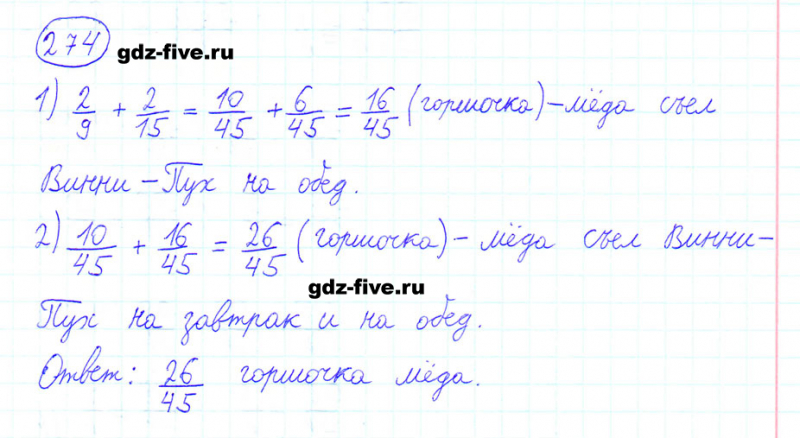 274 gdz-five.ru
1) 2/9 + 2/15 = 10/45 + 6/45 = 16/45 (горшочка) – мёда съел
Винни – Пух на обед.
2) 10/45 + 16/45 = 26/45 (горшочка) – мёда съел Винни –
gdz-five.ru
Пух на завтрак и на обед.
Ответ: 26/45 горшочка мёда.